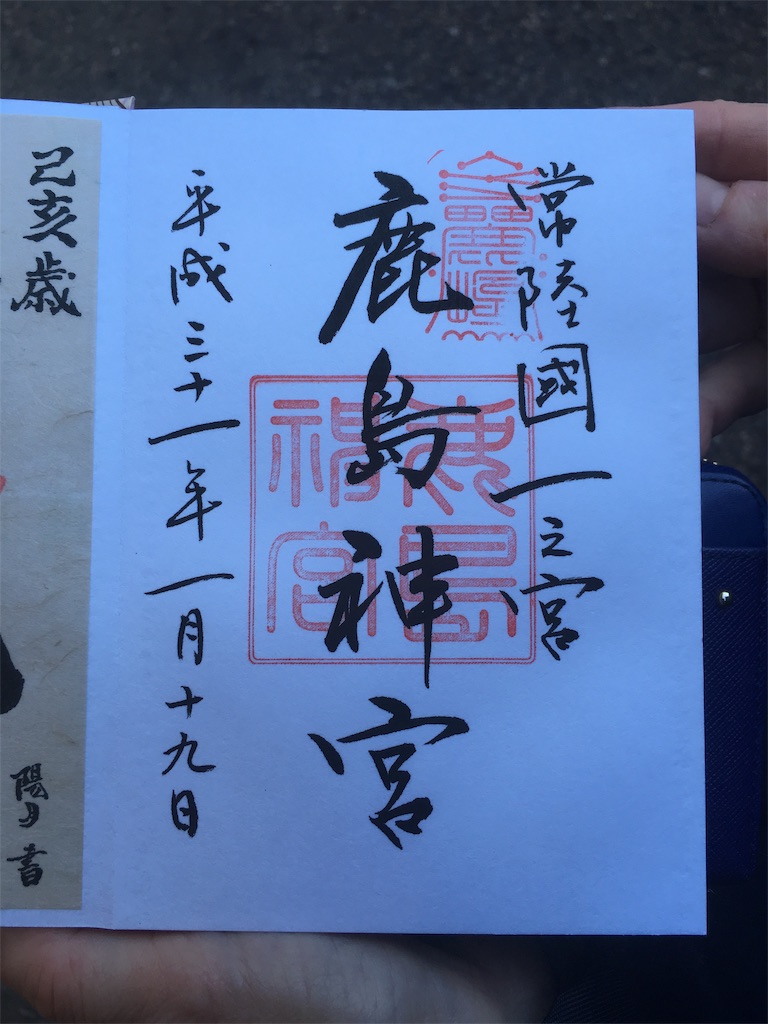 常陸國一之宮
鹿島神宮
鹿島神宮
平成三十一年一月十九日
己亥歳
書